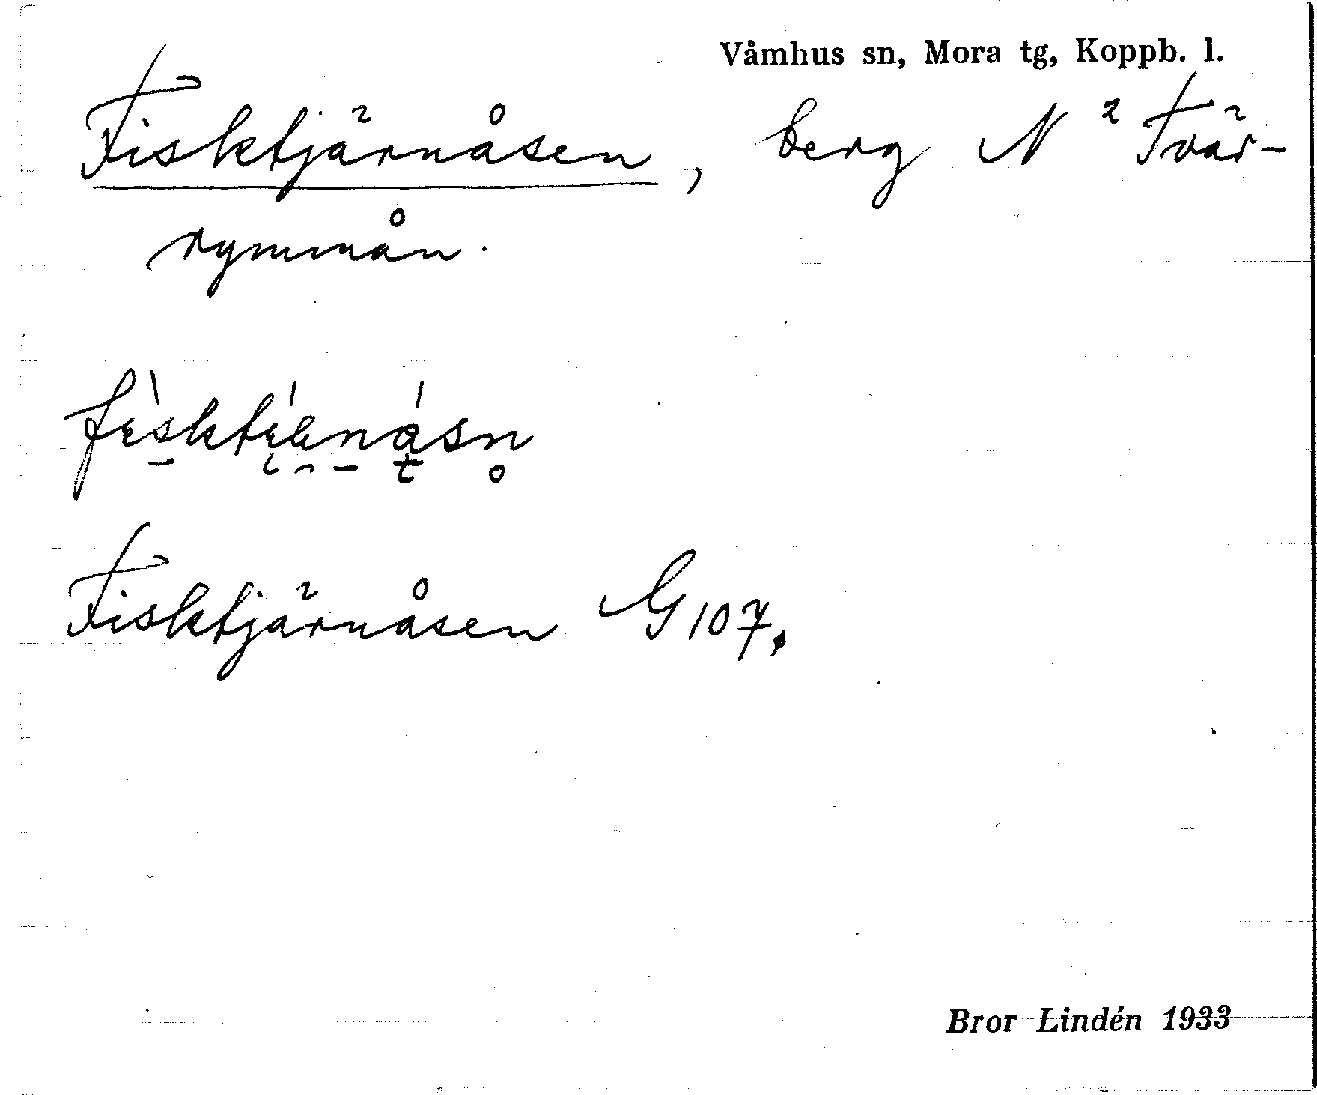 Våmhus sn, Mora tg, Koppb. l.
Fisktjärnåsen, berg N ² Tvär-
rymmån.
Fisktjärnåsen G 107.
Bror Lindén 1933